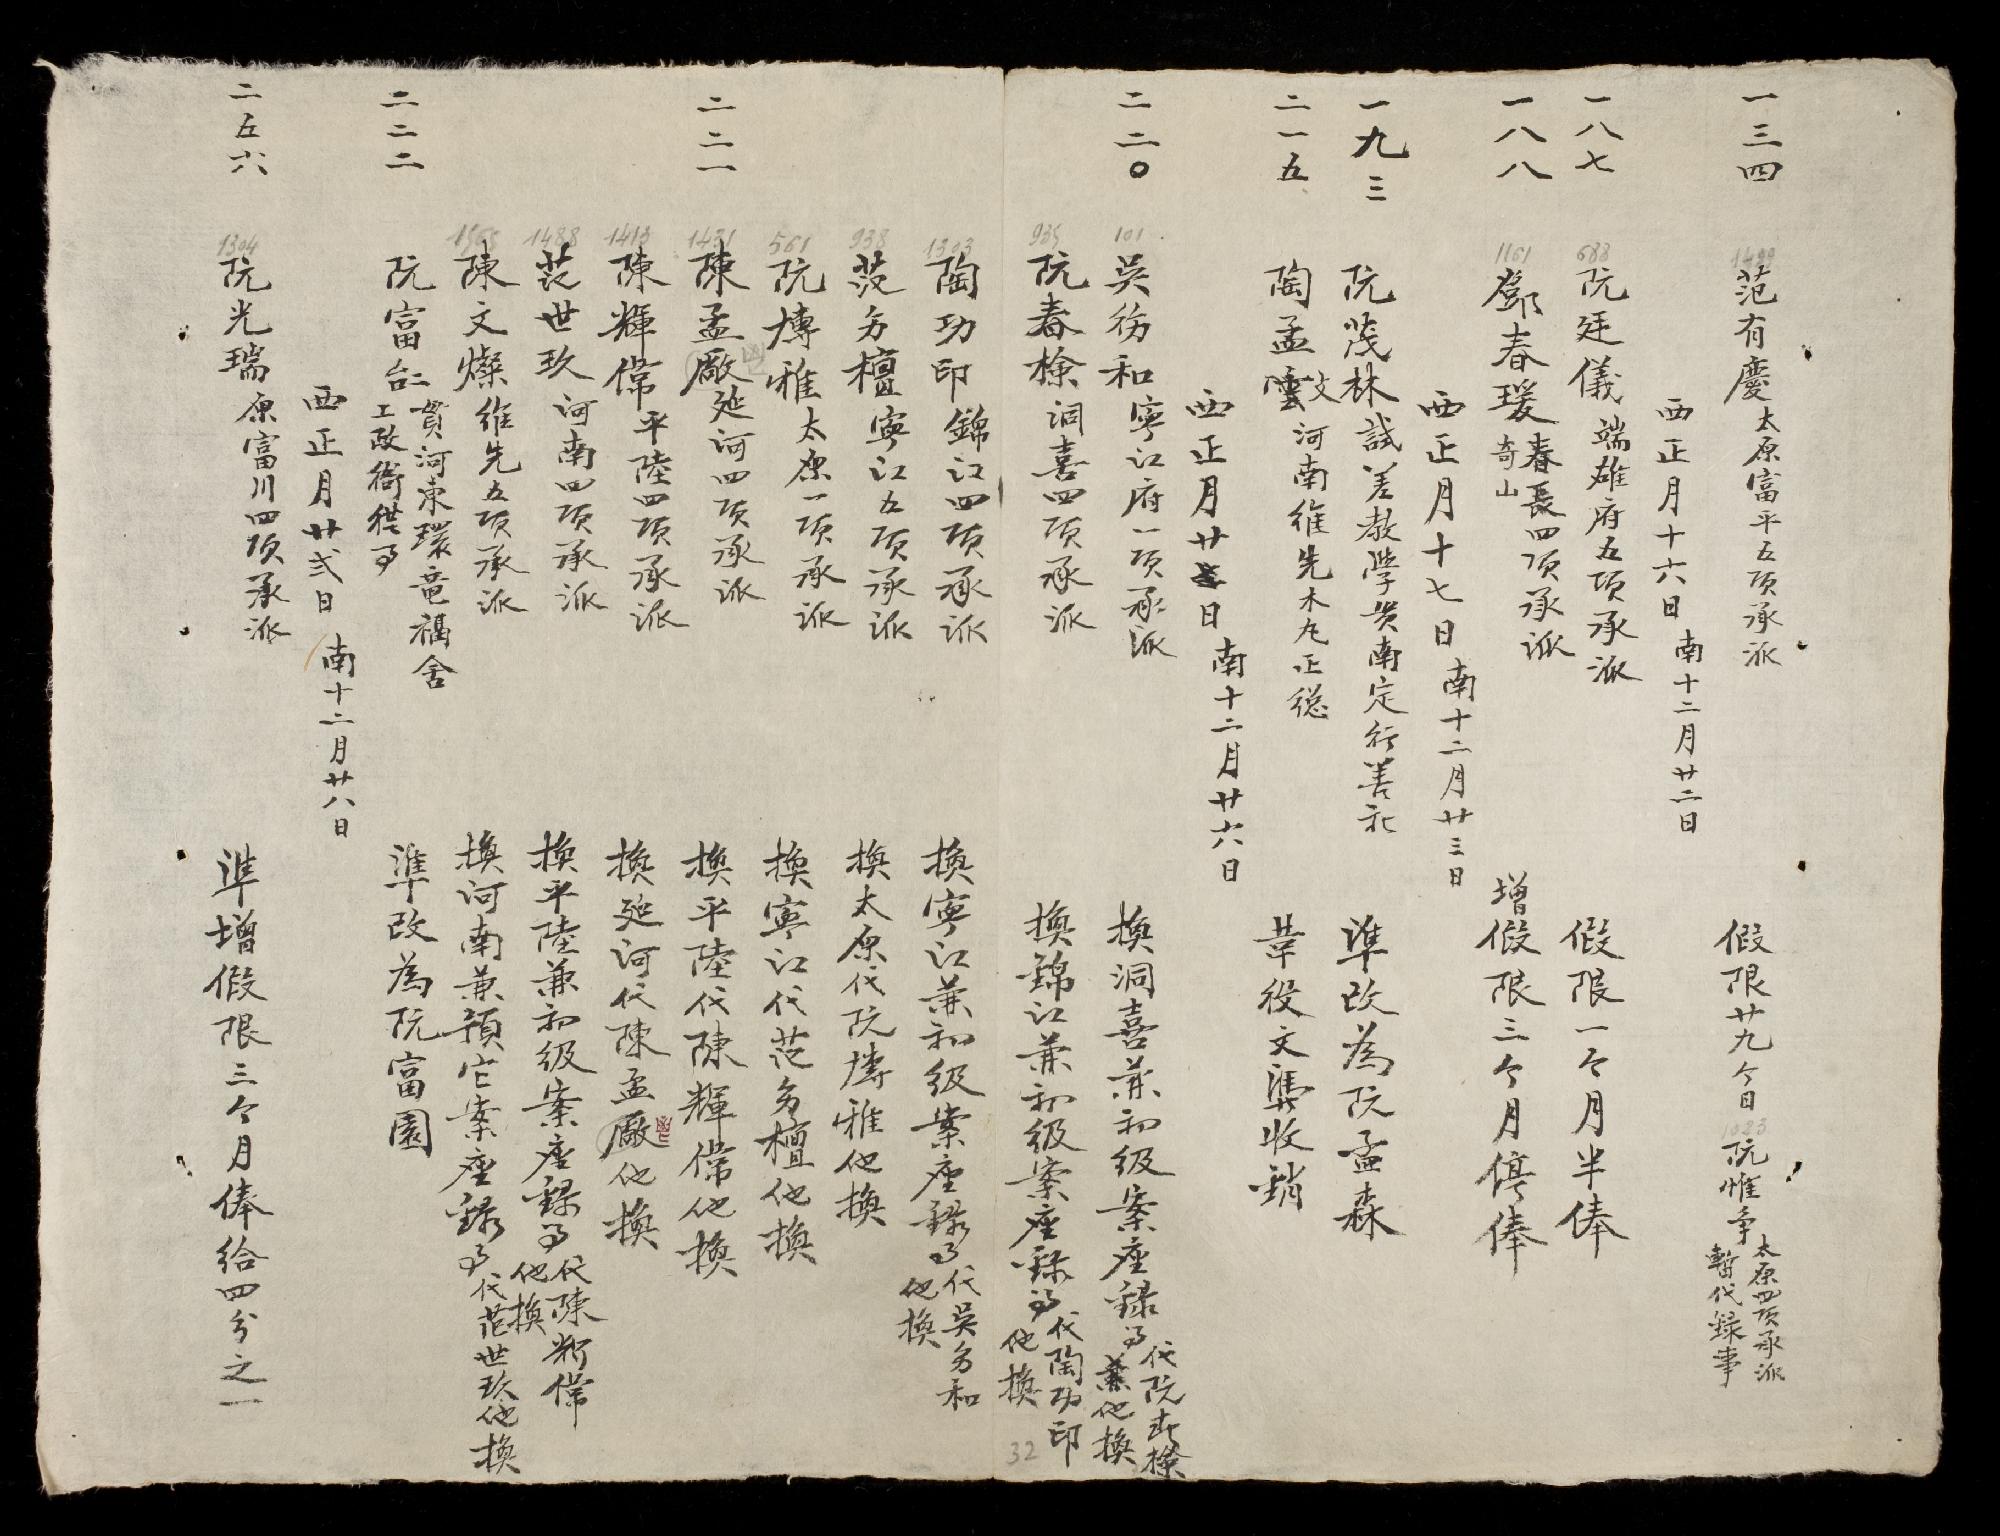 一三四
1499
范有慶 太原富平五項承派
假限廿九个日
1023
阮惟争 太原四項承派
暫代録事
西正月十六日 南十二月廿二日
一八七
688
阮廷儀 端雄府五項承派
假限一个月半俸
一八八
1161
鄧春瑗 春長四項承派
奇山
增假限三个月停俸
西正月十七日 南十二月廿三日
一九三
阮茂林 試差教學貫南定行善社
準改為阮孟森
二一五
陶孟雲 文
河南維先木丸正總
革役文憑收銷
西正月廿日 南十二月廿六日
二二〇
101
吳 和 寧江府一項承派
換洞喜兼初級案座録事 代阮春檢
兼他換
935
阮春檢 洞喜四項承派
換錦江兼初級案座録事 代陶功印
他換
1303
陶功印 錦江四項承派
換寧江兼初級案座録事 代吳 和
他換
938
范 檀 寧江五項承派
換太原代阮 雅他換
561
阮 雅 太原一項承派
換寧江代范 檀他換
二二一
1431
陳孟廠 延河四項承派
換平陸代陳輝 他換
1413
陳輝 平陸四項承派
換延河代陳孟廠他換
1488
范世玖 河南四項承派
換平陸兼初級案座録事 代陳
他換
陳文燦 維先五項承派
換河南兼預它案座録事 代范世玖他換
二二二
阮富 貫河東環竜福舍
工政衙供事
準改為阮富園
西正月廿弍日 南十二月廿八日
二五六
1304
阮光瑞 原富川四項承派
準增假限三个月俸給四分之一
32